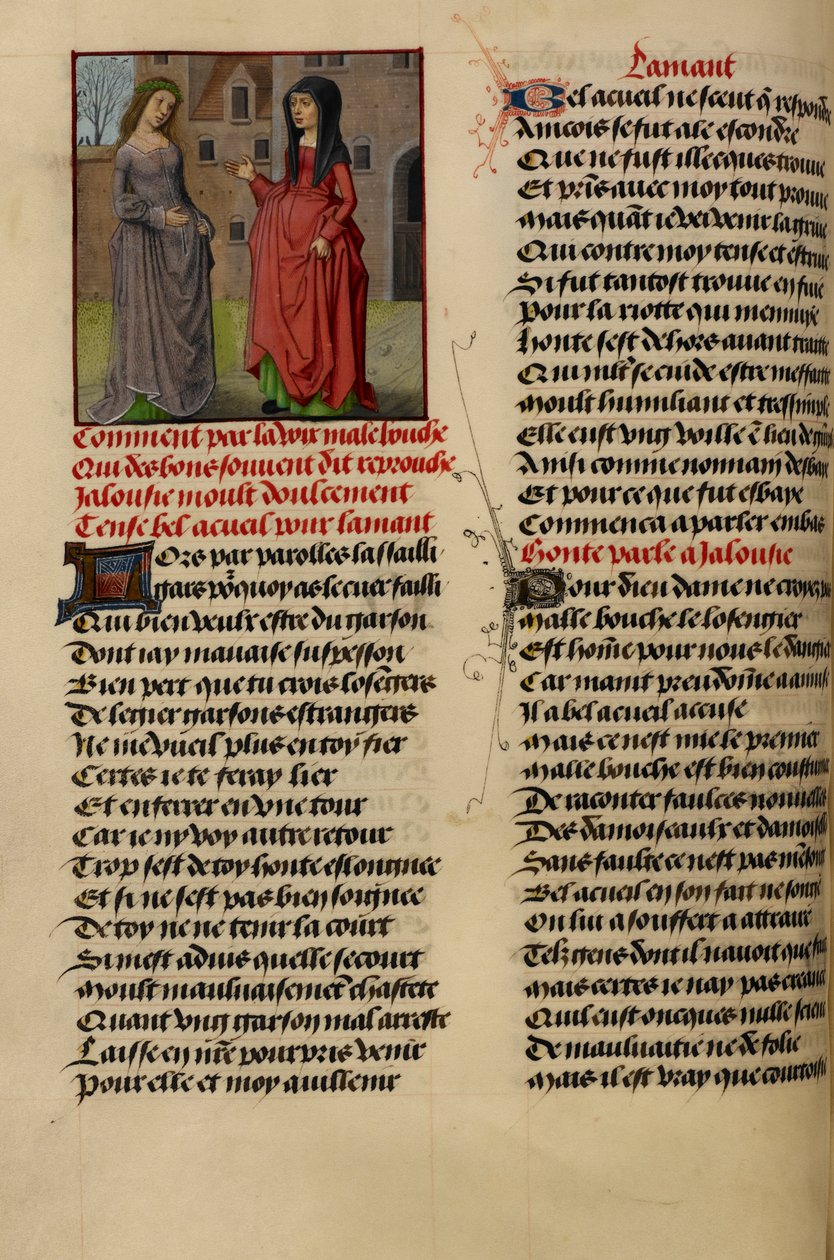 Comment par la voix male bouche
Qui des bons souuent dit reprouche
Jalousie moult doulcement
Tense bel acueil pour lamant
Lors par parolles lassailli
gars pourquoy as le cuer failli
Qui bien veulx estre du garson
Dont iay mauuaise suspesson
Bien pert que tu crois losengers
De legier garsons estrangers
Ne me vueil plus en toy fier
Certes ie te feray lier
Et enferrer en vne tour
Car ie ny voy autre retour
Trop sest de toy honte eslongnee
Et si ne sest pas bien soignee
De toy ne ne tenir la court
Si mest aduis quelle secourt
Moult mauluaisement chastete
Quant vng garson mal arreste
Laisse en nre pourpris venir
Pour elle et moy auillenir
Lamant
Bel acueil ne scent q respondre
Aincois se fut ale escondre
Que ne fust illecques trouue
Et prins auec moy tout prouue
Mais quant ie vei venir la griue
Qui contre moy tense et estriue
Si fut tantost trouue en fuie
Pour la riotte qui mennuye
Honte sest dehors auant
Qui mlt se cuide estre meffaitte
Moult humiliant et tressimple
Elle eust vng voille e lieu de
Ainsi comme nonnain
Et pour ce que fut esbaye
Commenca a parler em bas
Honte parle a Jalousie
Pour dieu dame ne croyez
Malle bouche le losengier
Est home pour nous le
Car maint preudome a
Il a bel acueil accuse
Mais ce nest mie le premier
Malle bouche est bien
De raconter faulces nouuelles
Des damoiseaulx et
Sans faulte ce nest pas
Bel acueil en son fait ne
On lui a souffert a attraire
Telz gens dont il nauoit que
Mais certes ie nay pas creance
Quil eust oncques nulle
De mauluaitie ne de folie
Mais il est vray que courtoisie